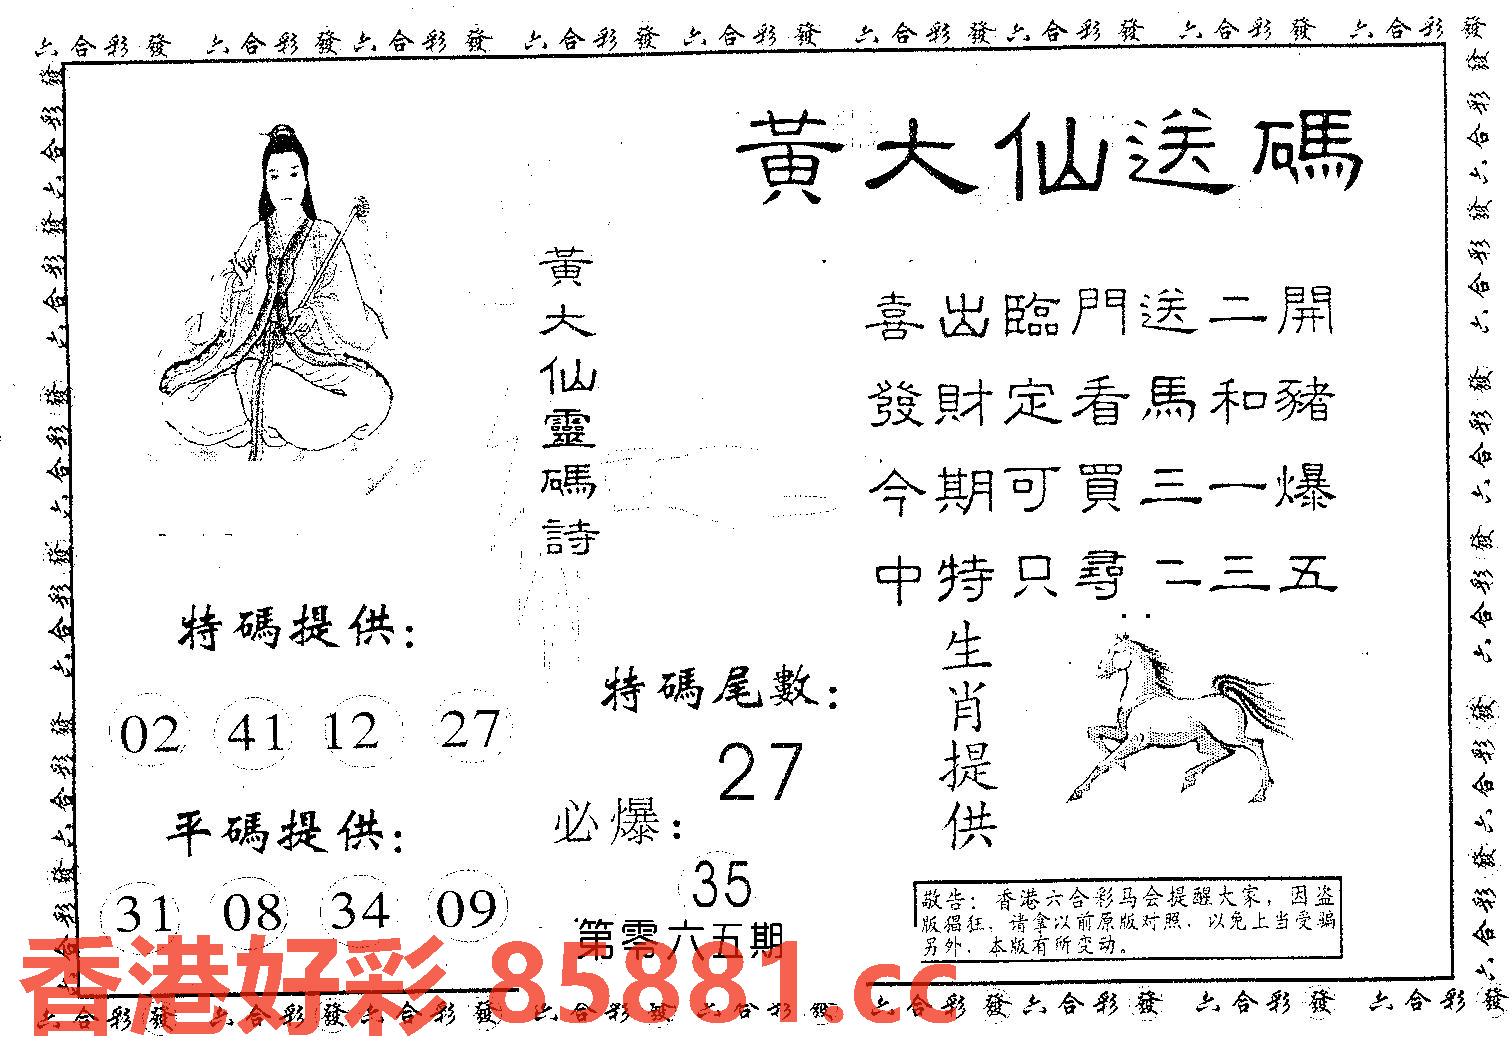 六合彩發 六合彩發 六合彩發 六合彩發 六合彩發 六合彩發 六合彩發 六合彩發 六合彩發
黃大仙送碼
黃大仙靈碼詩
喜出臨門送二開
發財定看馬和豬
今期可買三一爆
中特只尋二三五
特碼提供：
02 41 12 27
平碼提供：
31 08 34 09
特碼尾數：
27
必爆：
35
第零六五期
生肖提供
敬告：香港六合彩马会提醒大家，因盗
版猖狂，请拿以前原版对照，以免上当受骗
另外，本版有所变动。
香港好彩 85881.cc
六合彩發 六合彩發 六合彩發 六合彩發 六合彩發 六合彩發 六合彩發 六合彩發